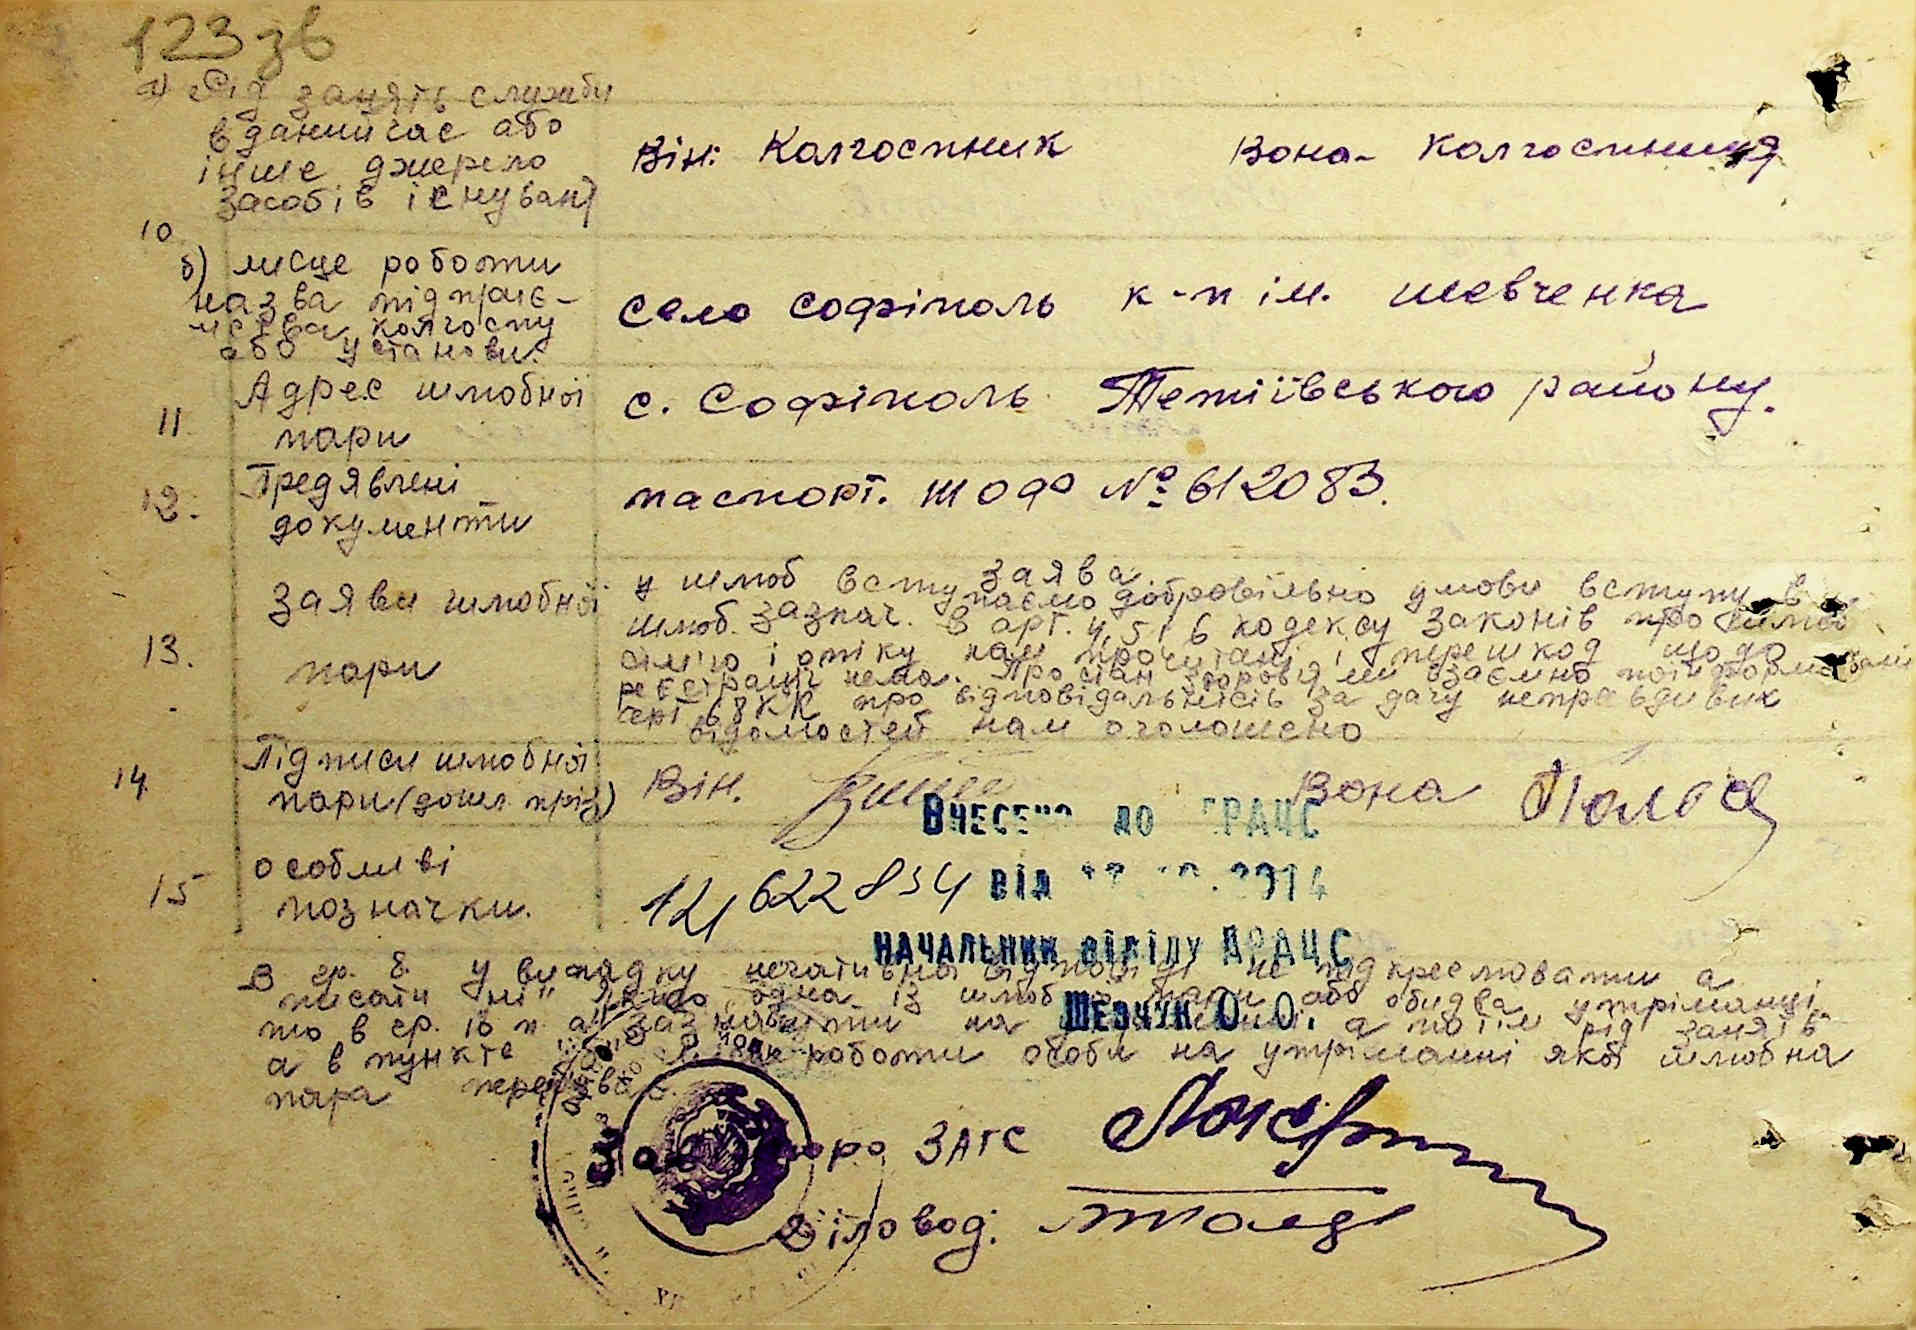 123 зв
а) Рід занять служби
в даний час або
інше джерело
засобів існуван)
Він: Колгоспник Вона - Колгоспниця
10
б) місце роботи
назва підприє-
мства колгоспу
або установи.
село Софіполь к-п ім. Шевченка
11 Адрес шлюбної
пари
с. Софіполь Тетіївського району.
12. Предявлені
документи
паспорт. № 612083.
13. Заяви шлюбної
пари
Заява
у шлюб вступаємо добровільно умови вступу в
шлюб. зазнач. в арт. 4, 5 і 6 кодексу законів про шлюб
сім'ю і опіку нам прочитані і перешкод що до
реєстрації нема. Про стан здоровя ми взаємно поінформовані
68 КК про відповідальність за дачу неправдивих
відомостей нам оголошено
14. Підписи шлюбної
пари (дошл. пріз)
Він. Вона
Внесено до ДРАЦС
15 особливі
позначки.
від 2014
начальник відділу ДРАЦС
Шевчук О.О.
В гр. 8. у випадку негативної відповіді не підкреслювати а
писати "ні" Якщо одна із шлюбної пари або обидва утріманці,
то в гр. 10 п. а зазначити на утріманні а потім рід занять
а в пункте роботи особи на утріманні якої шлюбна
пара перебуває.
Зав. бюро ЗАГС
Діловод: